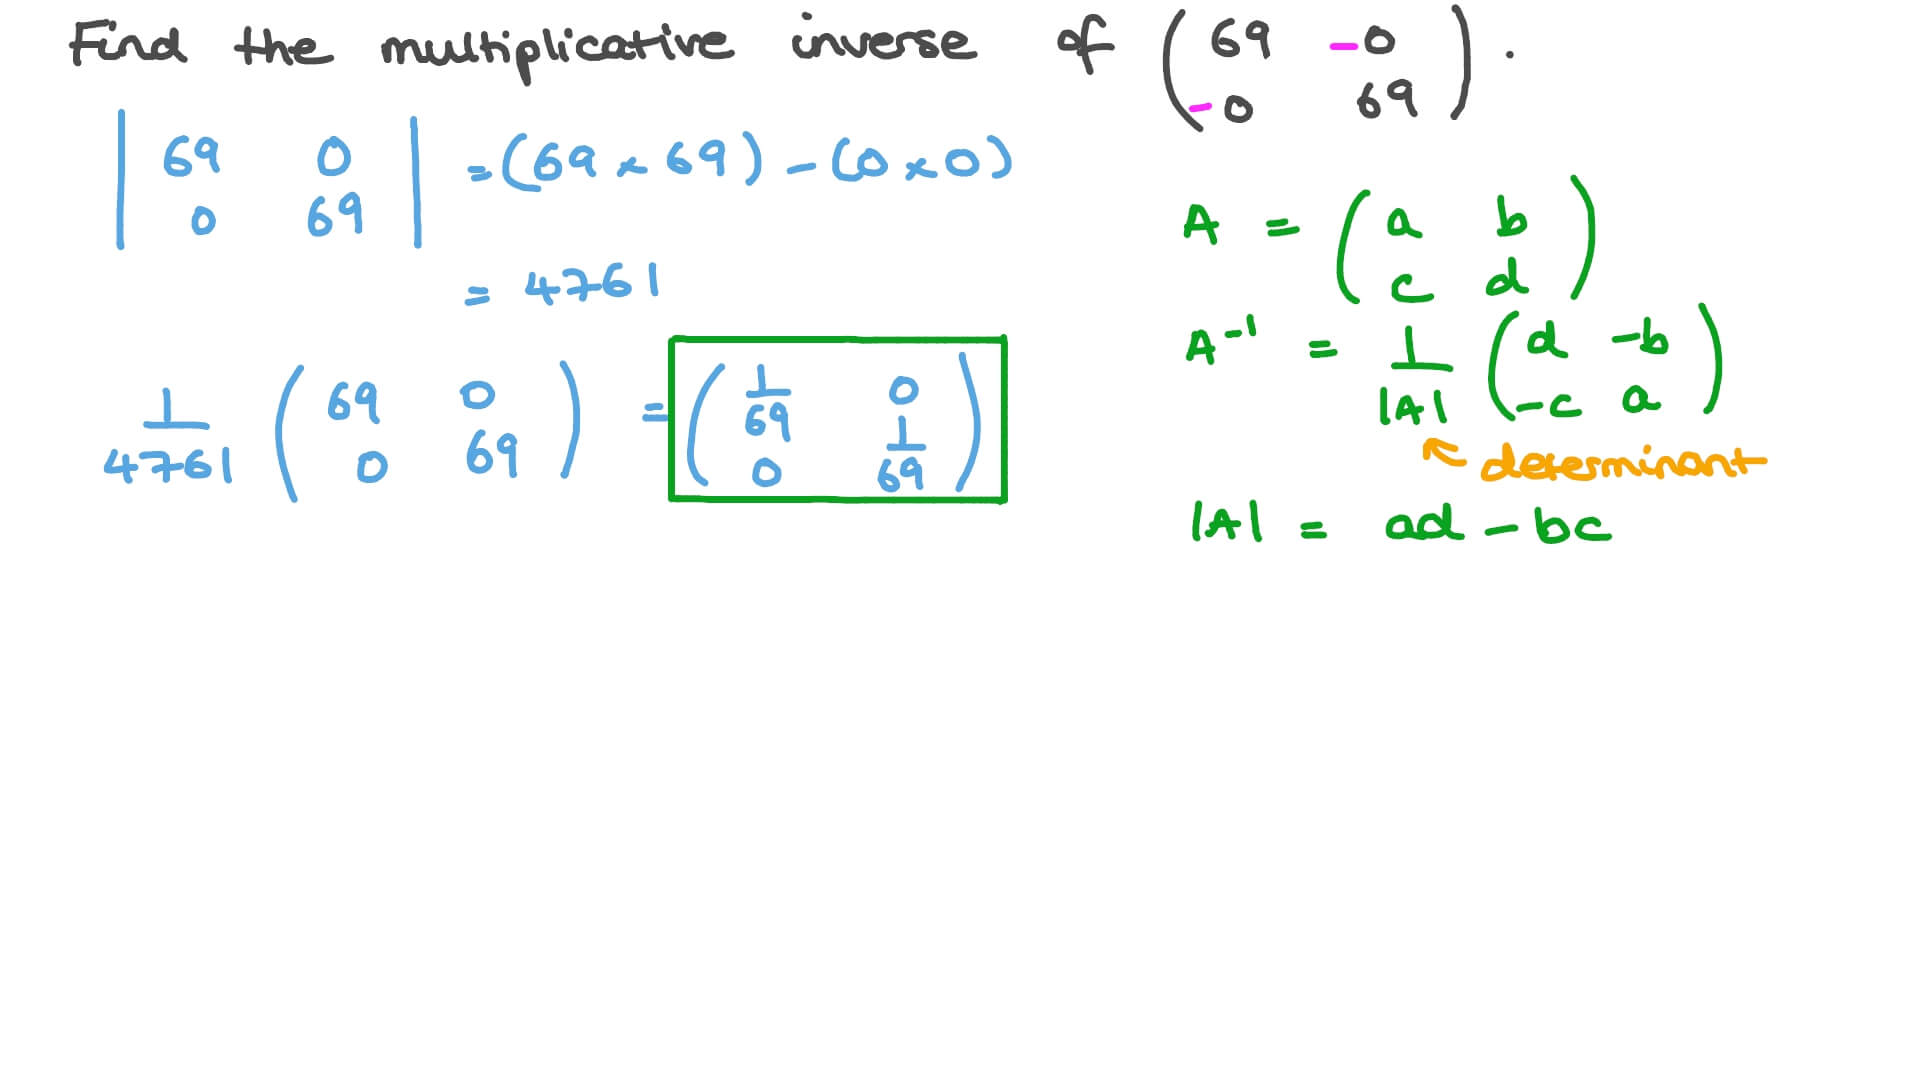 Find the multiplicative inverse of ( 69 -0
-0 69 ) .
| 69 0
0 69 | = (69 × 69) - (0 × 0)
= 4761
1/4761 ( 69 0
0 69 ) = ( 1/69 0
0 1/69 )
A = ( a b
c d )
A⁻¹ = 1/|A| ( d -b
-c a )
determinant
|A| = ad - bc